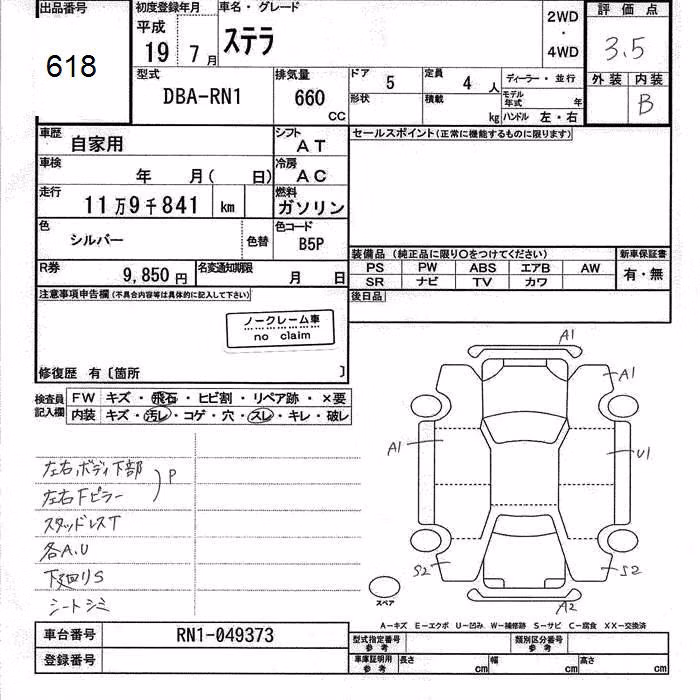 出品番号 初度登録年月 車名・グレード 2WD 評価点
618 平成 19 7月 ステラ ・ 4WD 3.5
型式 排気量 ドア 5 定員 4 人 ディーラー・並行 外装 内装
DBA-RN1 660 CC 形状 積載 kg モデル年式 年 B
ハンドル 左・右
車歴 自家用 シフト AT セールスポイント(正常に機能するものに限ります)
車検 年 月( 日) 冷房 AC
走行 11万9千841 km 燃料 ガソリン
色 シルバー 色替 色コード B5P
装備品 (純正品に限り○をつけてください) 新車保証書
PS PW ABS エアB AW 有・無
SR ナビ TV カワ
R券 9,850円 名変通知期限 月 日
後日品
注意事項申告欄(不具合内容等は具体的に記入して下さい)
ノークレーム車
no claim
修復歴 有〔箇所 〕
検査員記入欄 FW キズ・飛石・ヒビ割・リペア跡・×要
内装 キズ・汚レ・コゲ・穴・スレ・キレ・破レ
左右ボディ下部
左右Fピラー P
スタッドレスT
各A.U
下廻りS
シートシミ
A1
A1
A1
U1
S2
S2
A2
スペア
A-キズ E-エクボ U-凹み W-補修跡 S-サビ C-腐食 XX-交換済
車台番号 RN1-049373 型式指定番号 参考 類別区分番号 参考
登録番号 車庫証明用 参考 長さ cm 幅 cm 高さ cm